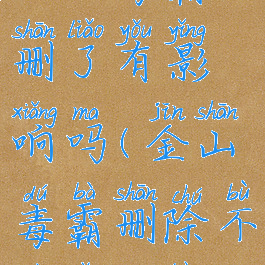 shān liǎo yǒu yǐng
删了有影
xiǎng ma jīn shān
响吗(金山
dú bà shān chú bù
毒霸删除不